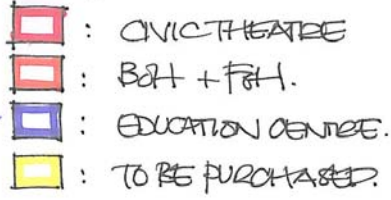 : CIVIC THEATRE
: BoH + FoH.
: EDUCATION CENTRE.
: TO BE PURCHASED.